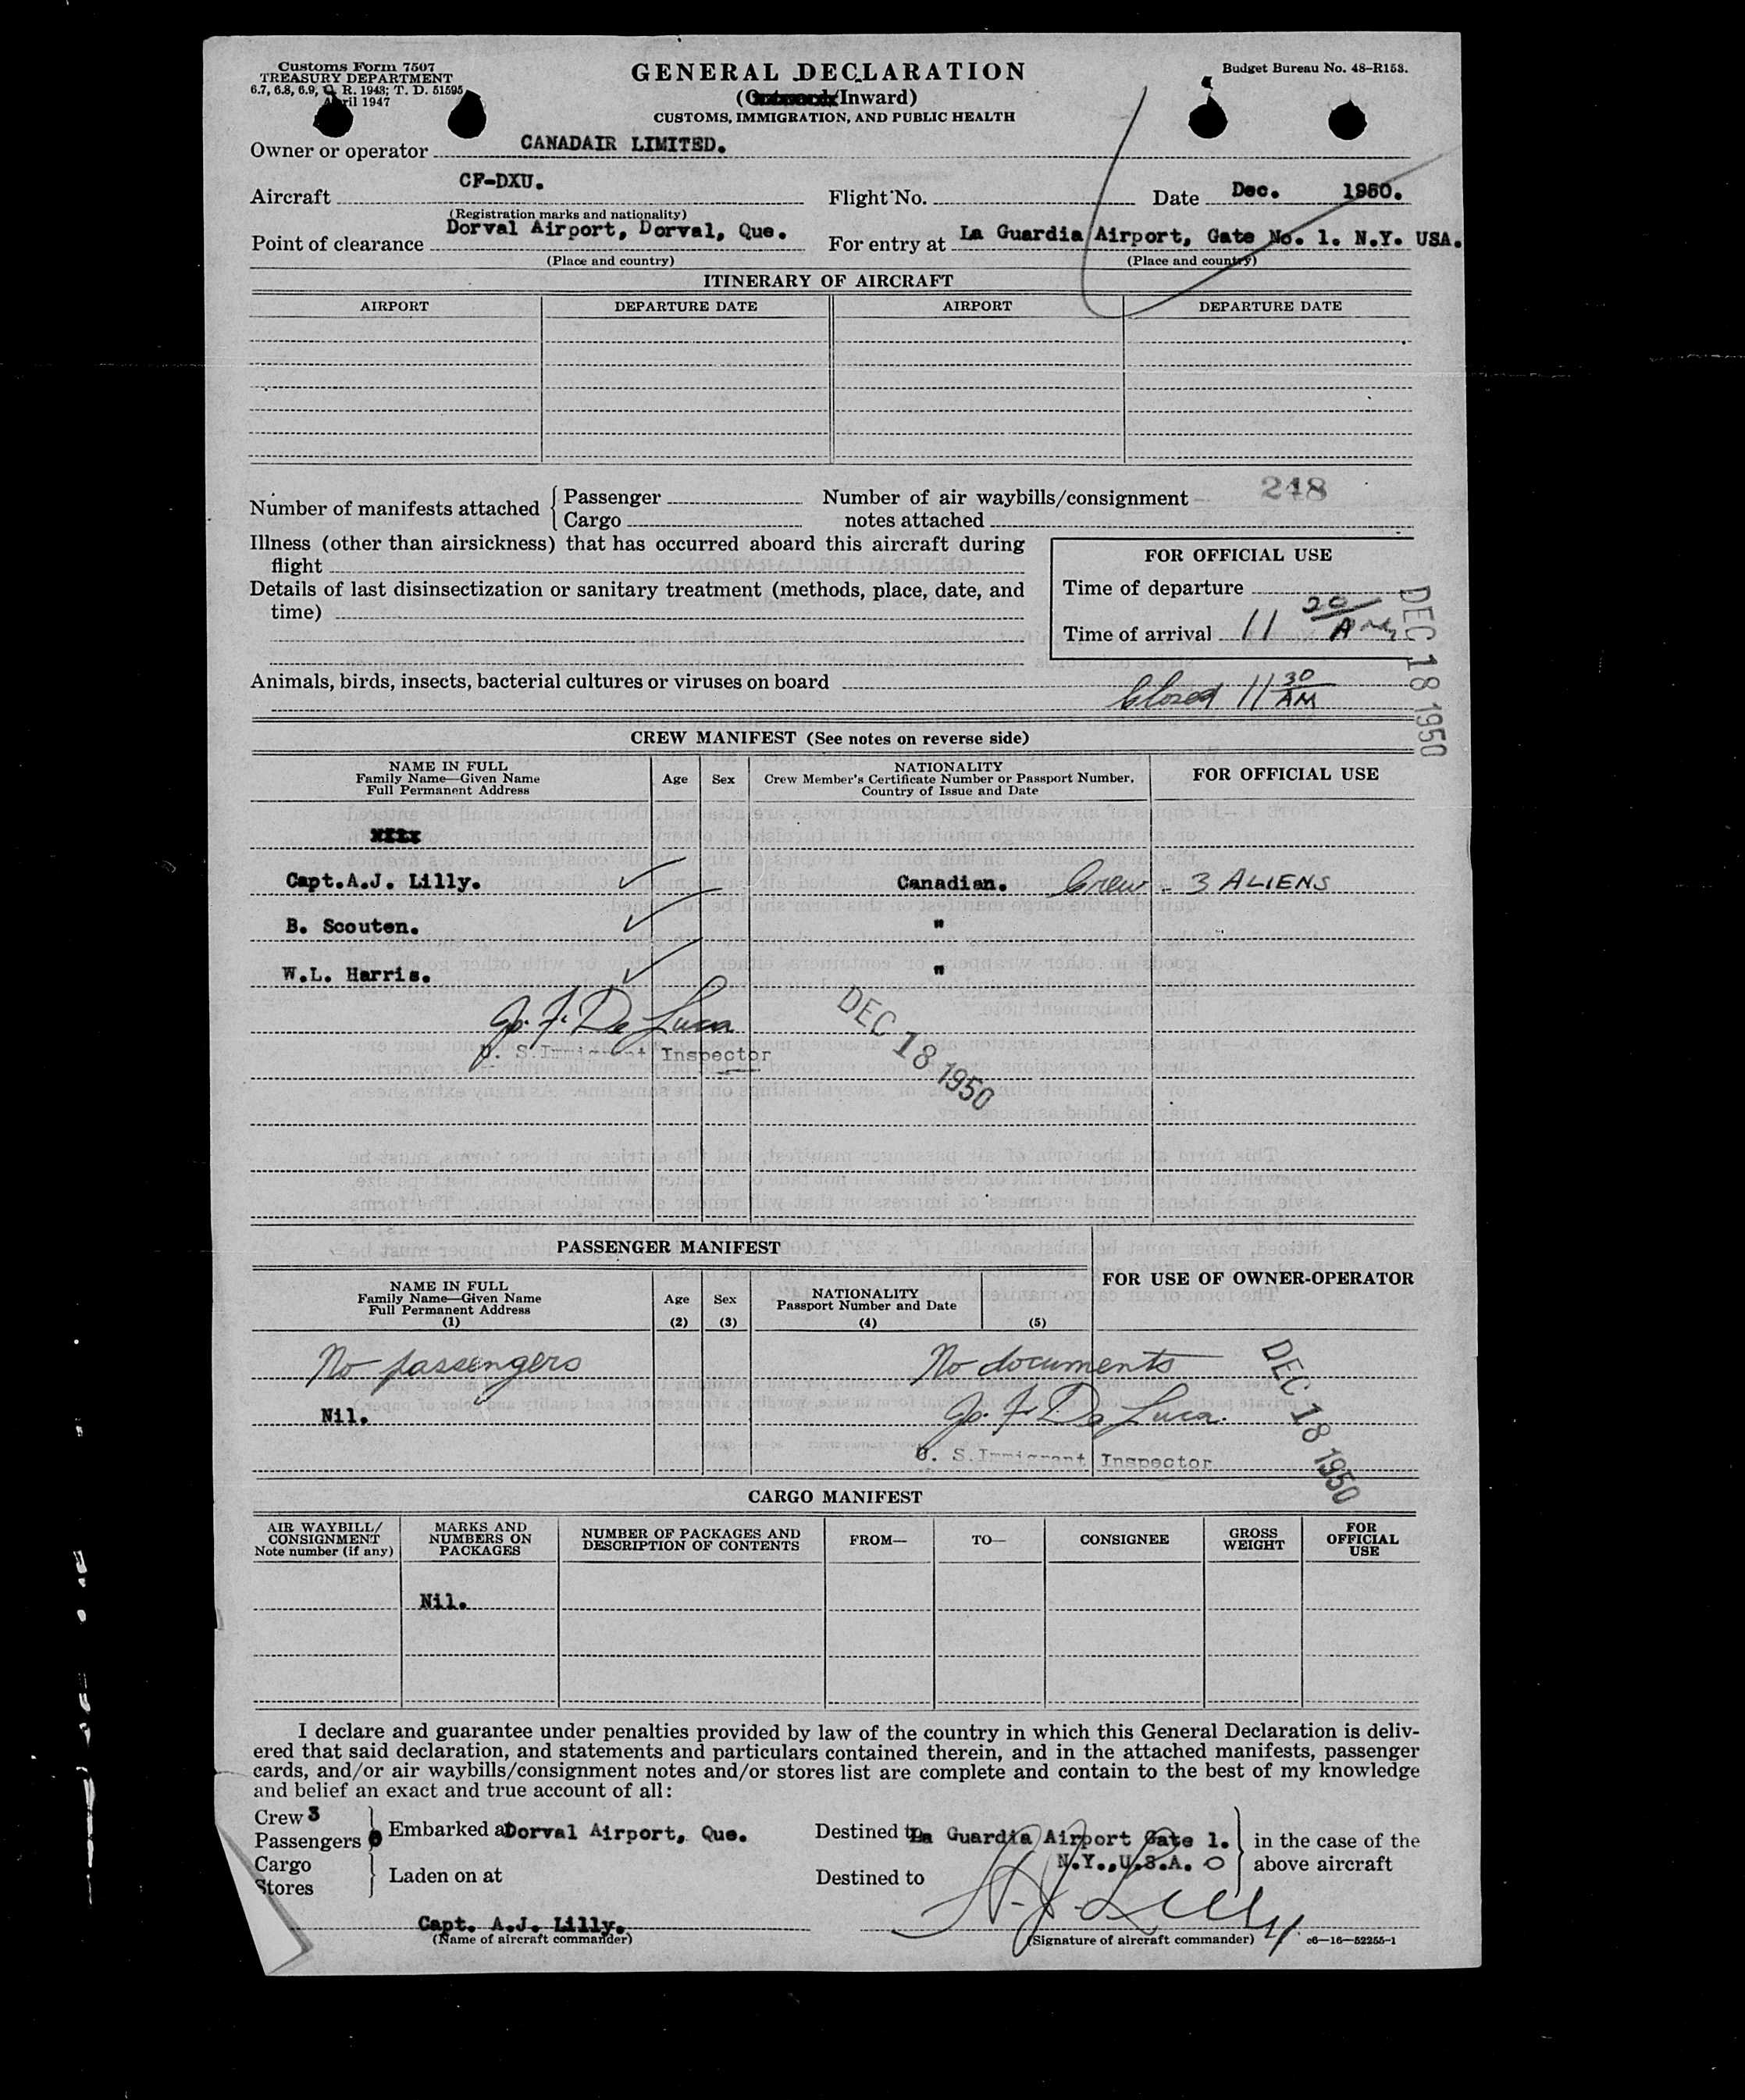 Customs Form 7507
TREASURY DEPARTMENT
6.7, 6.8, 6.9, C. R. 1943; T. D. 51595
April 1947
GENERAL DECLARATION
(Outward/Inward)
CUSTOMS, IMMIGRATION, AND PUBLIC HEALTH
Budget Bureau No. 48-R153.
Owner or operator CANADAIR LIMITED.
Aircraft CF-DXU. Flight No. Date Dec. 1950.
(Registration marks and nationality)
Point of clearance Dorval Airport, Dorval, Que. For entry at La Guardia Airport, Gate No. 1. N.Y. USA.
(Place and country) (Place and country)
ITINERARY OF AIRCRAFT
AIRPORT DEPARTURE DATE AIRPORT DEPARTURE DATE
248
Number of manifests attached Passenger Number of air waybills/consignment
Cargo notes attached
Illness (other than airsickness) that has occurred aboard this aircraft during
flight
Details of last disinsectization or sanitary treatment (methods, place, date, and
time)
FOR OFFICIAL USE
Time of departure
Time of arrival 11 20 AM
DEC 18 1950
Animals, birds, insects, bacterial cultures or viruses on board
Closed 11 30 AM
CREW MANIFEST (See notes on reverse side)
NAME IN FULL
Family Name—Given Name
Full Permanent Address
Age Sex
NATIONALITY
Crew Member's Certificate Number or Passport Number,
Country of Issue and Date
FOR OFFICIAL USE
Capt.A.J. Lilly. Canadian. Crew - 3 ALIENS
B. Scouten. "
W.L. Harris. "
Jo. F. De Luca
U. S. Immigrant Inspector
DEC 18 1950
PASSENGER MANIFEST
NAME IN FULL
Family Name—Given Name
Full Permanent Address
(1)
Age
(2)
Sex
(3)
NATIONALITY
Passport Number and Date
(4) (5)
FOR USE OF OWNER-OPERATOR
No passengers No documents
Nil. Jo. F. De Luca.
U. S. Immigrant Inspector
DEC 18 1950
CARGO MANIFEST
AIR WAYBILL/
CONSIGNMENT
Note number (if any)
MARKS AND
NUMBERS ON
PACKAGES
NUMBER OF PACKAGES AND
DESCRIPTION OF CONTENTS
FROM—
TO—
CONSIGNEE
GROSS
WEIGHT
FOR
OFFICIAL
USE
Nil.
I declare and guarantee under penalties provided by law of the country in which this General Declaration is deliv-
ered that said declaration, and statements and particulars contained therein, and in the attached manifests, passenger
cards, and/or air waybills/consignment notes and/or stores list are complete and contain to the best of my knowledge
and belief an exact and true account of all:
Crew 3
Passengers 0 Embarked at Dorval Airport, Que. Destined to La Guardia Airport Gate 1. in the case of the
N.Y.,U.S.A. above aircraft
Cargo
Stores Laden on at Destined to
Capt. A.J. Lilly. A. J. Lilly
(Name of aircraft commander) (Signature of aircraft commander) c6—16—52255-1